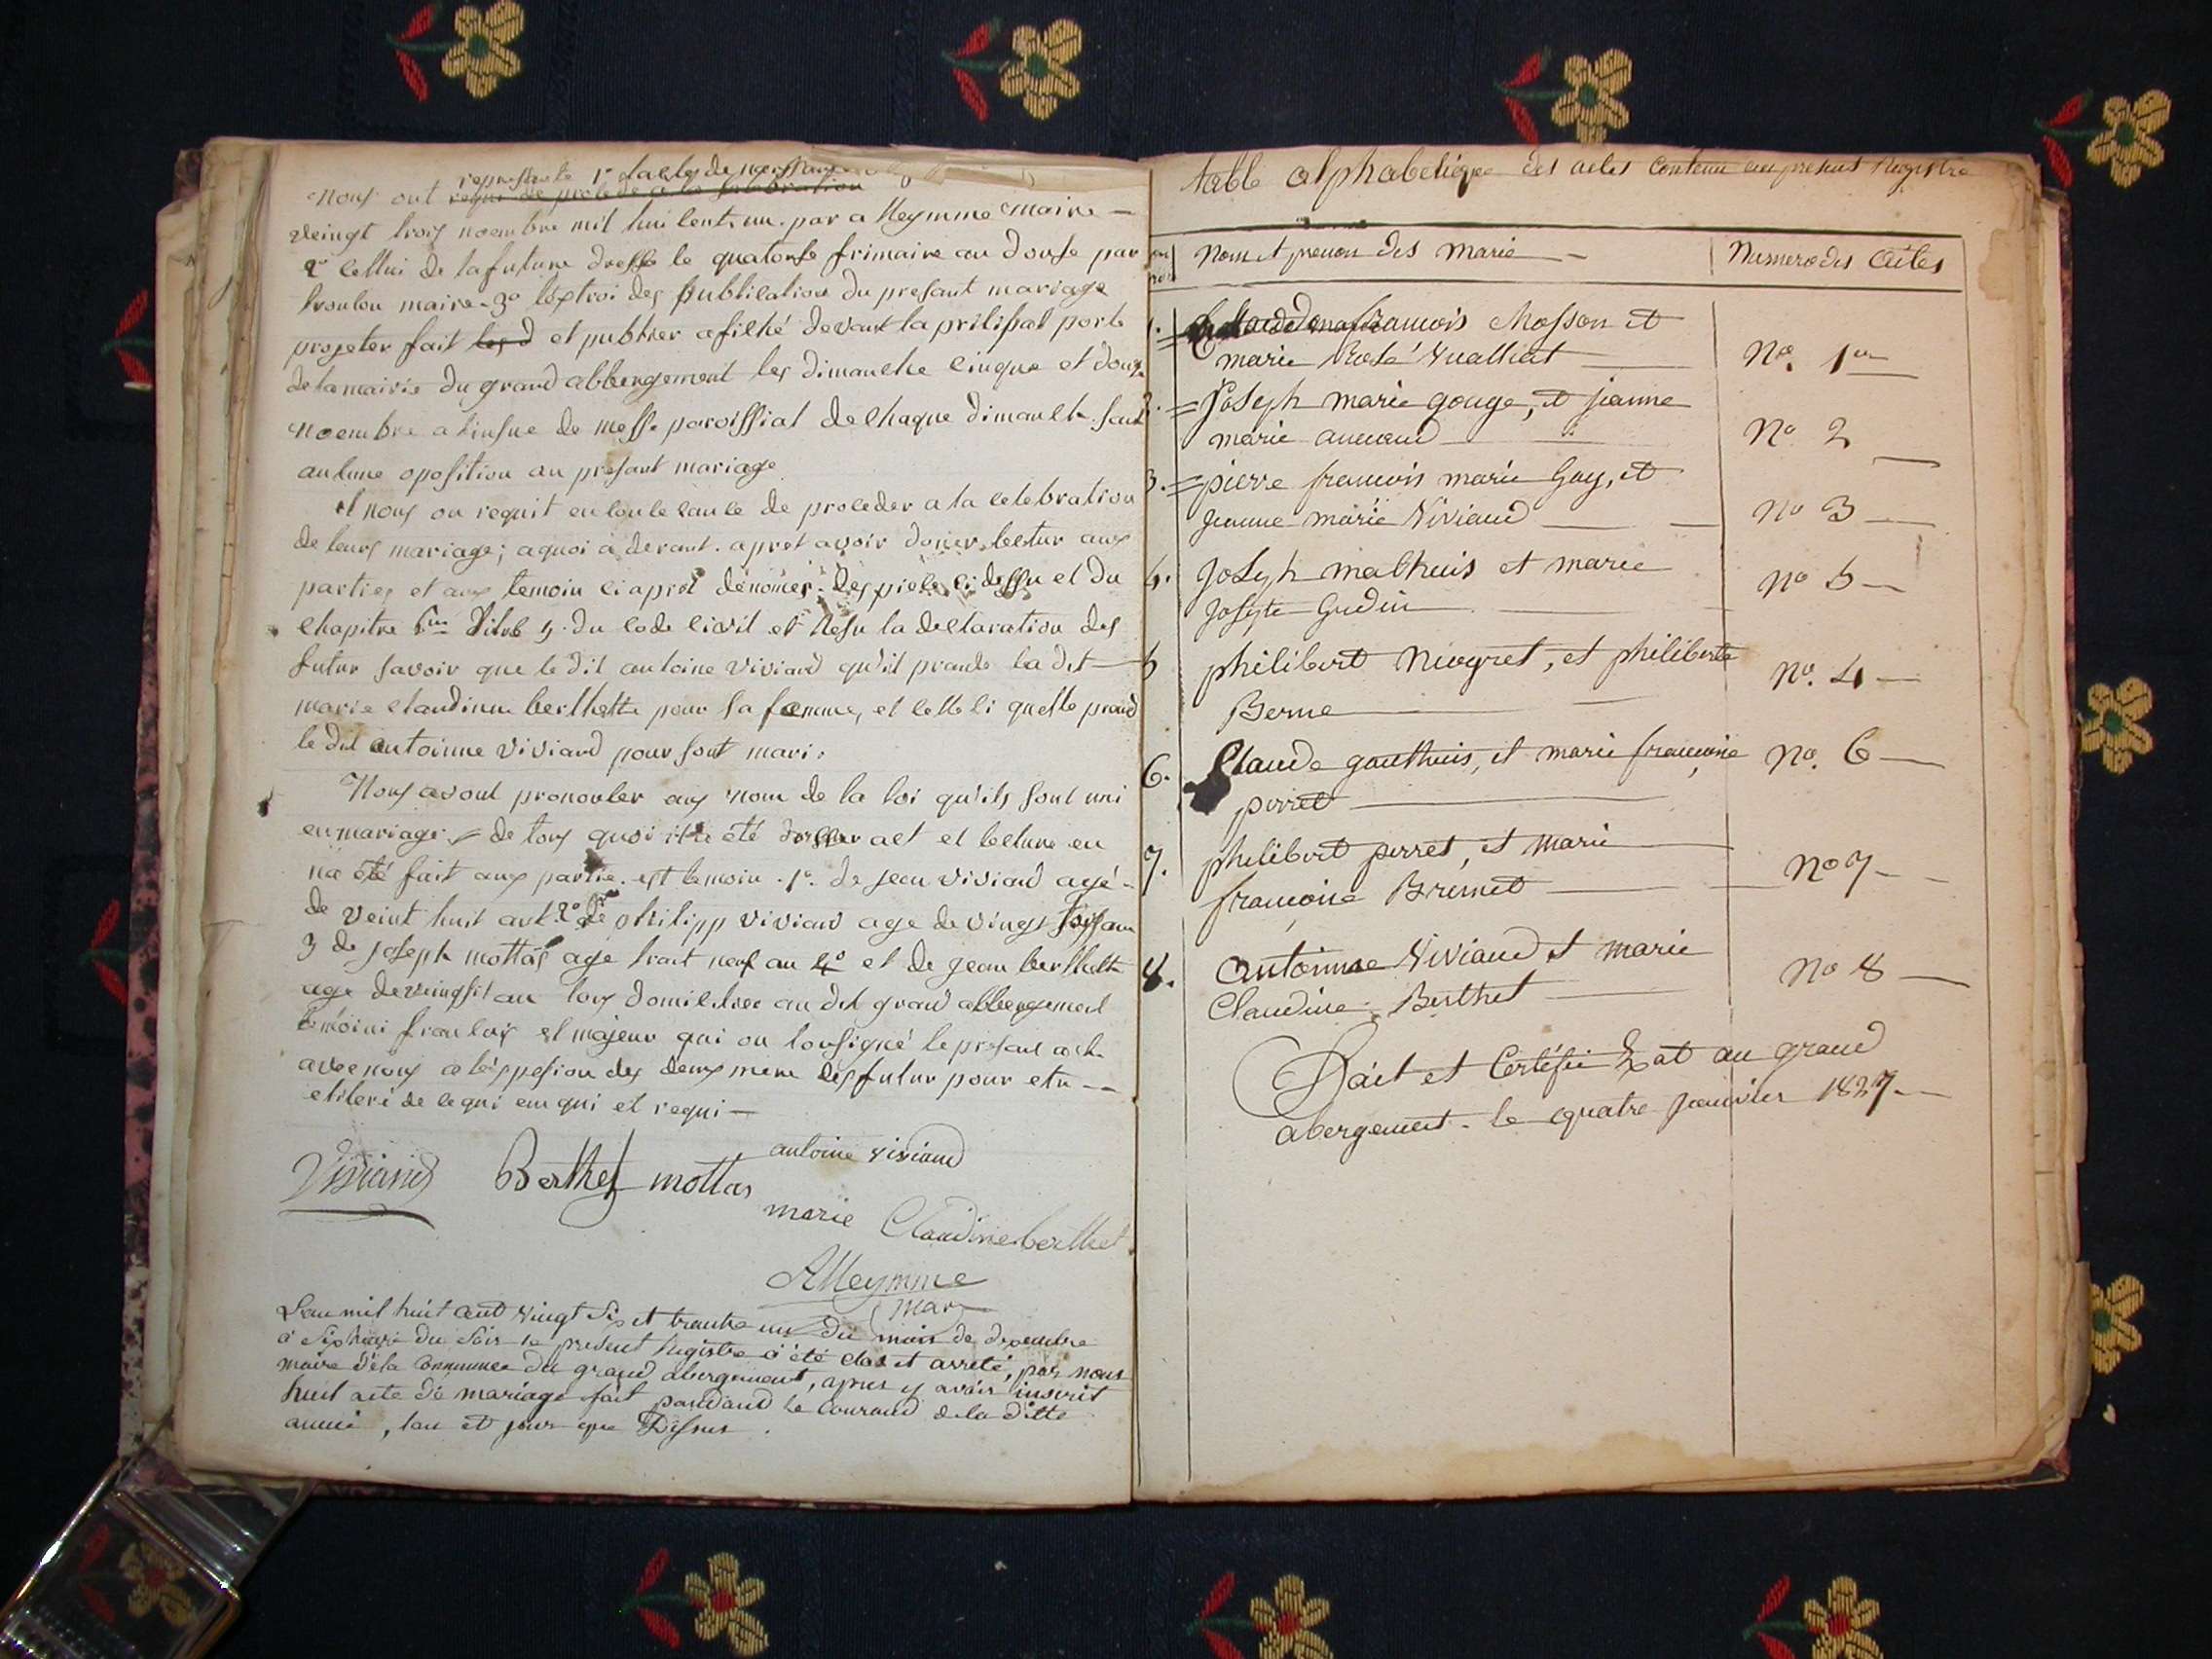 représente 1° lacte de naissance
Nous ont requi de procede a la selebration
veingt trois noembre mil hui cent un. par a Meymme maire
2° cellui de la future dresse le quatorse frimaire an douse par
maire. 3° léxtroi des publication du presant mariage
projeter fait et publier afiché devant la prilipal porte
de la mairie du grand abbergement les dimanche cinque et douze
noembre a linsue de messe paroissial de chaque dimanch. sant
aucune oposition au presant mariage
et nous on requit en de proceder a la celebration
de leurs mariage; aquoi a derant. apret avoir doner lectur aux
parties et aux temoin ci apret dénomer. des piece ci dessu et du
chapitre 6me Titre 5. du code civil et resu la declaration des
futur savoir que le dit antoine viviand qu'il prande la dit
marie claudinne berthette pour sa femme, et celle ci quelle prand
le dit antoinne viviand pour sont mari.
Nous avont prononcer aux nom de la loi qu'ils sont uni
en mariage. de tous quoi il a été dresser act et lecture en
na été fait aux partie. est temoin. 1°. de jean viviand agé
de veint huit ant 2° de philipp viviand age de vingt six an
3 de joseph mottas age trant neuf an 4° et de jean berthelt
age de veingsit an tous domicilier au dit grand abbergement
temoini francais et majeur qui on sousigné le presant act
avec nous a léxpesion des deux mere des futur pour etre
et de requi
Viviand Berthet mottas antoine viviand
marie Claudine berthet
A Meymme
mar
Lan mil huit cent vingt Six et trante un du mois de decembre
a Six heure du Soir le present Registre a été clos et arreté, par nous
maire de la commune du grand abergement, apres y avoir inscrit
huit acte de mariage fait pandand le courand de la ditte
année, lan et jour que Desus.
table alphabetique des actes contenu au present Registre
Nom et prenon des marie Numero des actes
1. francois Mosson et
marie Rosé Vualliat No. 1er
2. Joseph marie gouge, et jeanne
marie No 2
3. pierre francois marie Guy, et
jeanne marie Viviand No 3
4. Joseph mathieu et marie
Josepte Gudin No 5
5 philibert Niogret, et philiberte
Berne No. 4
6. Claude gauthier, et marie francoise
perret No. 6
7. philibert perret, et marie
francoise Brunet No 7
8. Antoinne Viviand et marie
Claudine Berthet No 8
Fait et Certéfié Exat au grand
abergement. le quatre janvier 1827